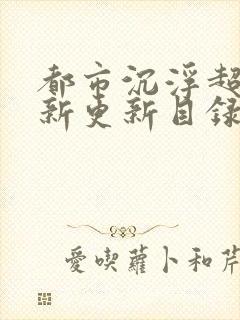 都市沉浮超
新更新目録
愛喫蘿卜和芹